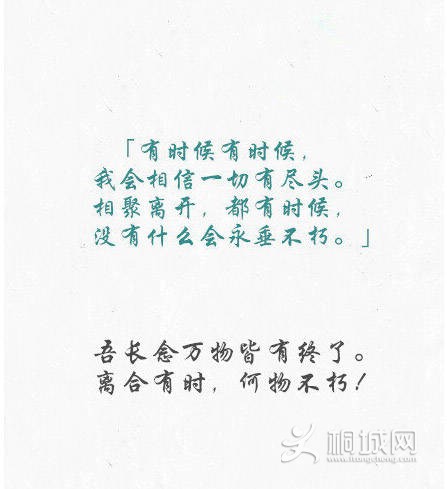 「有时候有时候，
我会相信一切有尽头。
相聚离开，都有时候，
没有什么会永垂不朽。」
吾长念万物皆有终了。
离合有时，何物不朽！
桐城网
www.itongcheng.com